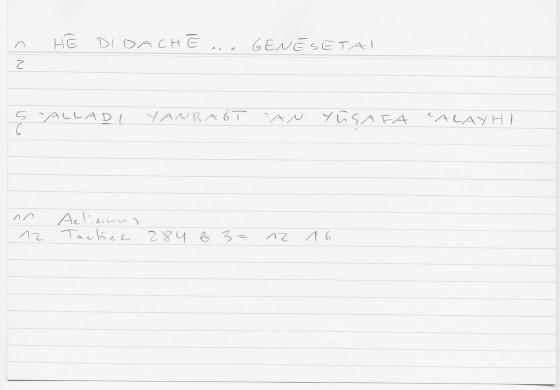 1 HĒ DIDACHĒ ... GENĒSETAI
2
5 ʾALLAḎI YANBAĠĪ ʾAN YŪṢAFA ʿALAYHI
6
11 Aelianus
12 Tactica 284 B 3 = 12.16